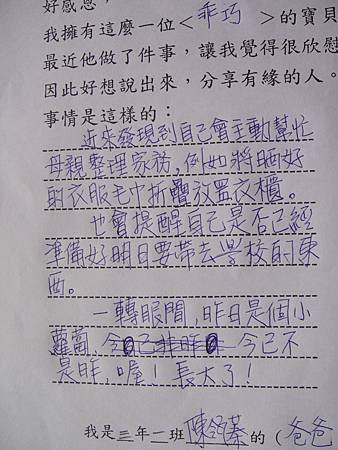 好感恩，
我擁有這麼一位<乖巧>的寶貝
最近他做了件事，讓我覺得很欣慰
因此好想說出來，分享有緣的人。
事情是這樣的：
近來發現到自己會主動幫忙
母親整理家務，例如將晒好
的衣服毛巾折疊放置衣櫃。
也會提醒自己是否已經
準備好明日要帶去學校的東
西。
一轉眼間，昨日是個小
蘿蔔，今已不
是昨，喔！長大了！
我是三年一班陳 蓁的（爸爸